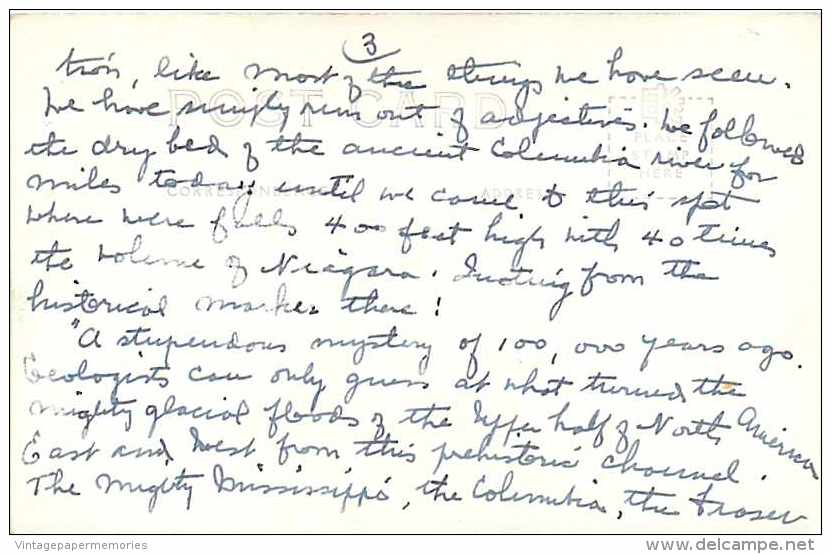 3
tion, like most of the things we have seen.
We have simply run out of adjectives. We followed
the dry bed of the ancient Columbia river for
miles today until we came to this spot
where were falls 400 feet high with 40 times
the volume of Niagara. Quoting from the
historical marker there:
"A stupendous mystery of 100,000 years ago.
Geologists can only guess at what turned the
mighty glacial floods of the Upper half of North America
East and West from this prehistoric channel.
The mighty Mississippi, the Columbia, the Fraser
POST CARD
CORRESPONDENCE
ADDRESS
PLACE
STAMP
HERE
Vintagepapermemories
delcampe.net